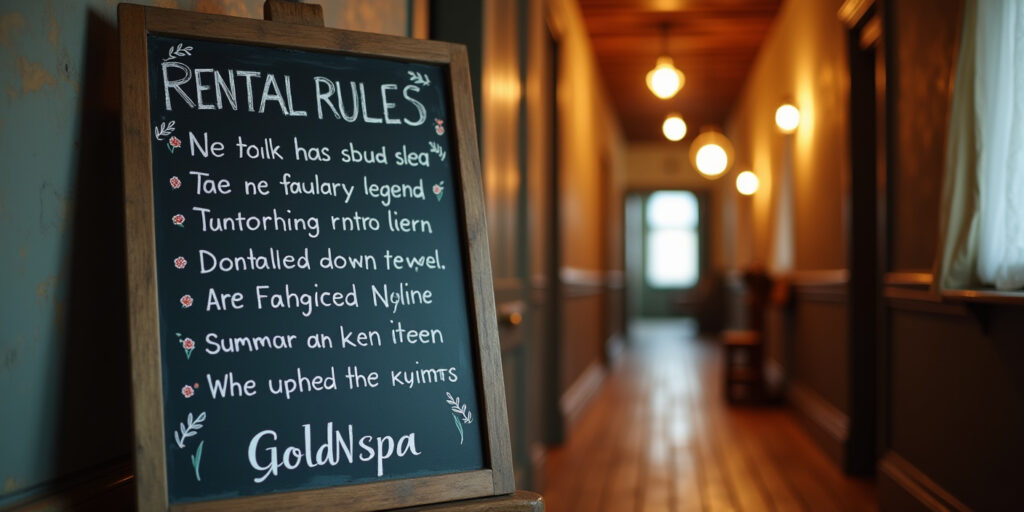 RENTAL RULES
Ne toılk has sbud slea
Tae ne faulary legend
Tuntorhing rntro lıern
Dontalled down tewel.
Are Fahgiced Nyline
Summar an ken iteen
Whe uphed the kyimts
GoldNspa